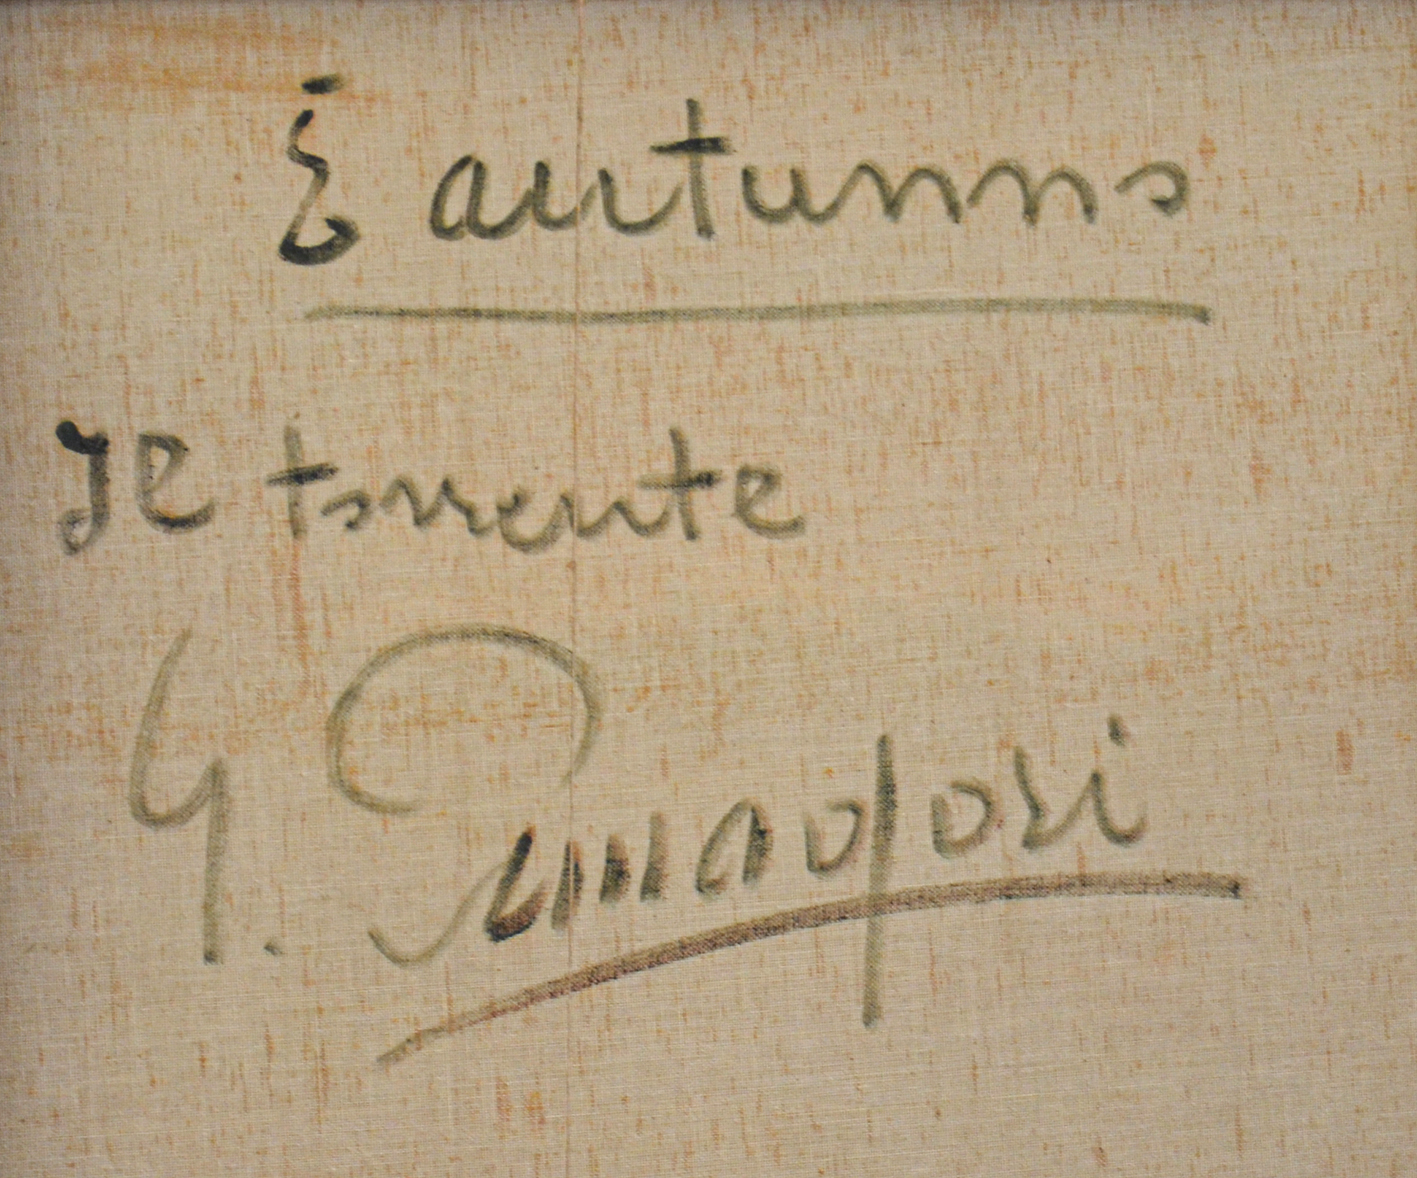 È autunno
Il torrente
G. Amadori